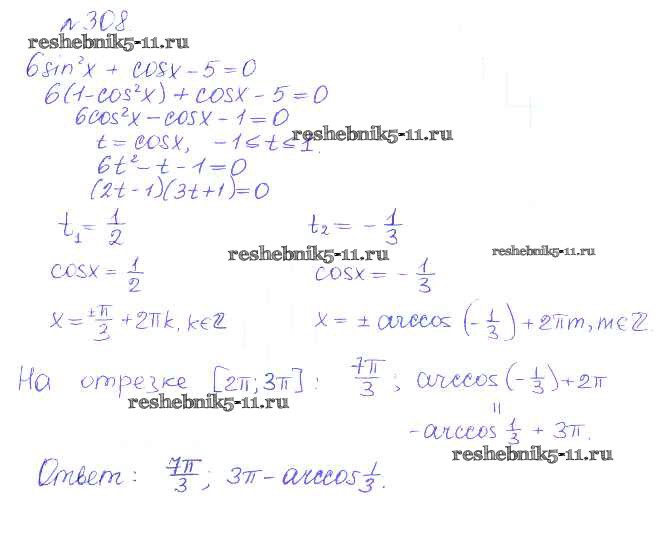 №308
reshebnik5-11.ru
6sin²x + cosx - 5 = 0
6(1-cos²x) + cosx - 5 = 0
6cos²x - cosx - 1 = 0
t = cosx, -1 ≤ t ≤ 1.
reshebnik5-11.ru
6t² - t - 1 = 0
(2t - 1)(3t + 1) = 0
t₁ = 1/2 t₂ = - 1/3
reshebnik5-11.ru reshebnik5-11.ru
cosx = 1/2 cosx = - 1/3
x = ±π/3 + 2πk, k∈Z x = ± arccos (-1/3) + 2πm, m∈Z.
На отрезке [2π; 3π] : 7π/3 ; arccos(-1/3) + 2π
reshebnik5-11.ru
=
-arccos 1/3 + 3π.
reshebnik5-11.ru
Ответ: 7π/3 ; 3π - arccos 1/3.